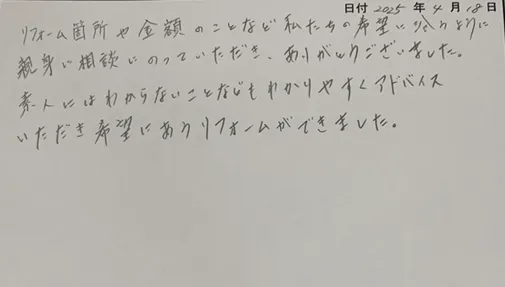 日付 2025 年 4 月 18 日
リフォーム箇所や金額のことなど私たちの希望に沿うように
親身に相談にのっていただき、ありがとうございました。
素人にはわからないことなどもわかりやすくアドバイス
いただき希望にあうリフォームができました。